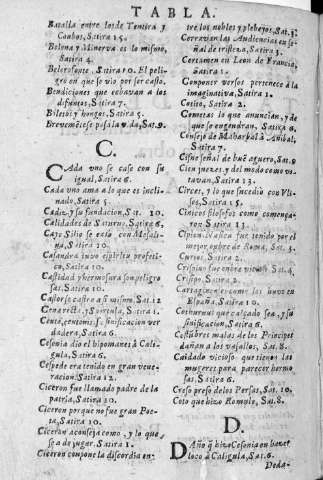 TABLA.
Batalla entre los de Tentira y
Combos, Satira 15.
Belona y Minerva es lo mismo,
Satira 4.
Belerofonte, Satira 10. El peli-
gro en que se vio por ser casto.
Bendiciones que echavan a los
difuntos, Satira 7.
Satira 5.
Brevemẽte se pasa la vida, Sat. 9.
C.
CAda uno se case con su
igual, Satira 6.
Cada uno ama a lo que es incli-
nado, Satira 5.
Cadiz y su fundacion, Sat. 10.
Calidades de Saturno, Satira 6.
Cayo Silio se casò con Mesali-
na, Satira 10.
Casandra tuvo espiritu profeti-
co, Satira 10.
Castidad y hermosura son peligro
sas, Satira 10.
Castor se castrò a si mismo. Sat. 12
Satira 1.
ver
dadera, Satira 6.
Cesonia dio el hipomanes à Cali-
gula, Satira 6.
Cespede era tenido en gran vene-
racion, Satira 12.
Ciceron fue llamado padre de la
patria, Satira 10.
Ciceron porque no fue gran Poe-
ta, Satira 10.
Ciceron aconseja como, y lo que
sea de jugar, Satira 1.
Ciceron compone la discordia en-
tre los nobles y plebeyos, Sat. 3.
Cerravan las Audiencias en se-
ñal de tristeza, Satira 3.
Certamen en Leon de Francia,
Satira 1.
Componer versos pertenece à la
imaginativa, Satira 1.
Cotito, Satira 2.
Cometas lo que anuncian, y de
que se engendran, Satira 6.
Consejo de Maharbal à Anibal,
Satira 7.
Cisne señal de buẽ aguero, Sat. 8
Cien juezes, y del modo como vo-
tavan, Satira 13.
Circes, y lo que sucediò con Uli-
ses, Satira 15.
Cinicos filosofos como comença-
ron Satira 13.
Cipion Nasica fue tenido por el
mejor onbre de Roma, Sat. 3.
Curios Satira 2.
Crispino fue onbre vicioso Sat. 4.
Crispo, Satira 2.
Cartaginenses como los huvo en
España, Satira 10.
Cothurnus que calçado sea, y su
sinificacion, Satira 6.
Costũbres malas de los Principes
dañan a los vasallos, Sat. 8.
Cuidado vicioso que tienen las
mugeres para parecer hermo-
sas, Satira 6.
Creso preso de los Persas, Sat. 10.
Coto que hizo Romulo, Sat. 8.
D.
DAño q̃ hizo Cesonia en hazer
loco à Caligula, Sat. 6.
Deda-